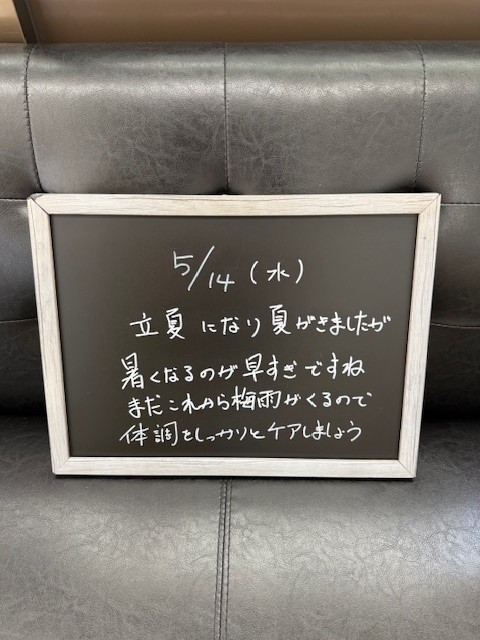 5/14(水)
立夏になり夏がきましたが
暑くなるのが早すぎですね
まだこれから梅雨がくるので
体調をしっかりとケアしましょう